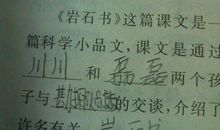 《岩石书》这篇课文是一
篇科学小品文,课文是通过
川川 和 磊磊 两个孩
子与 的交谈,介绍了
许多有关